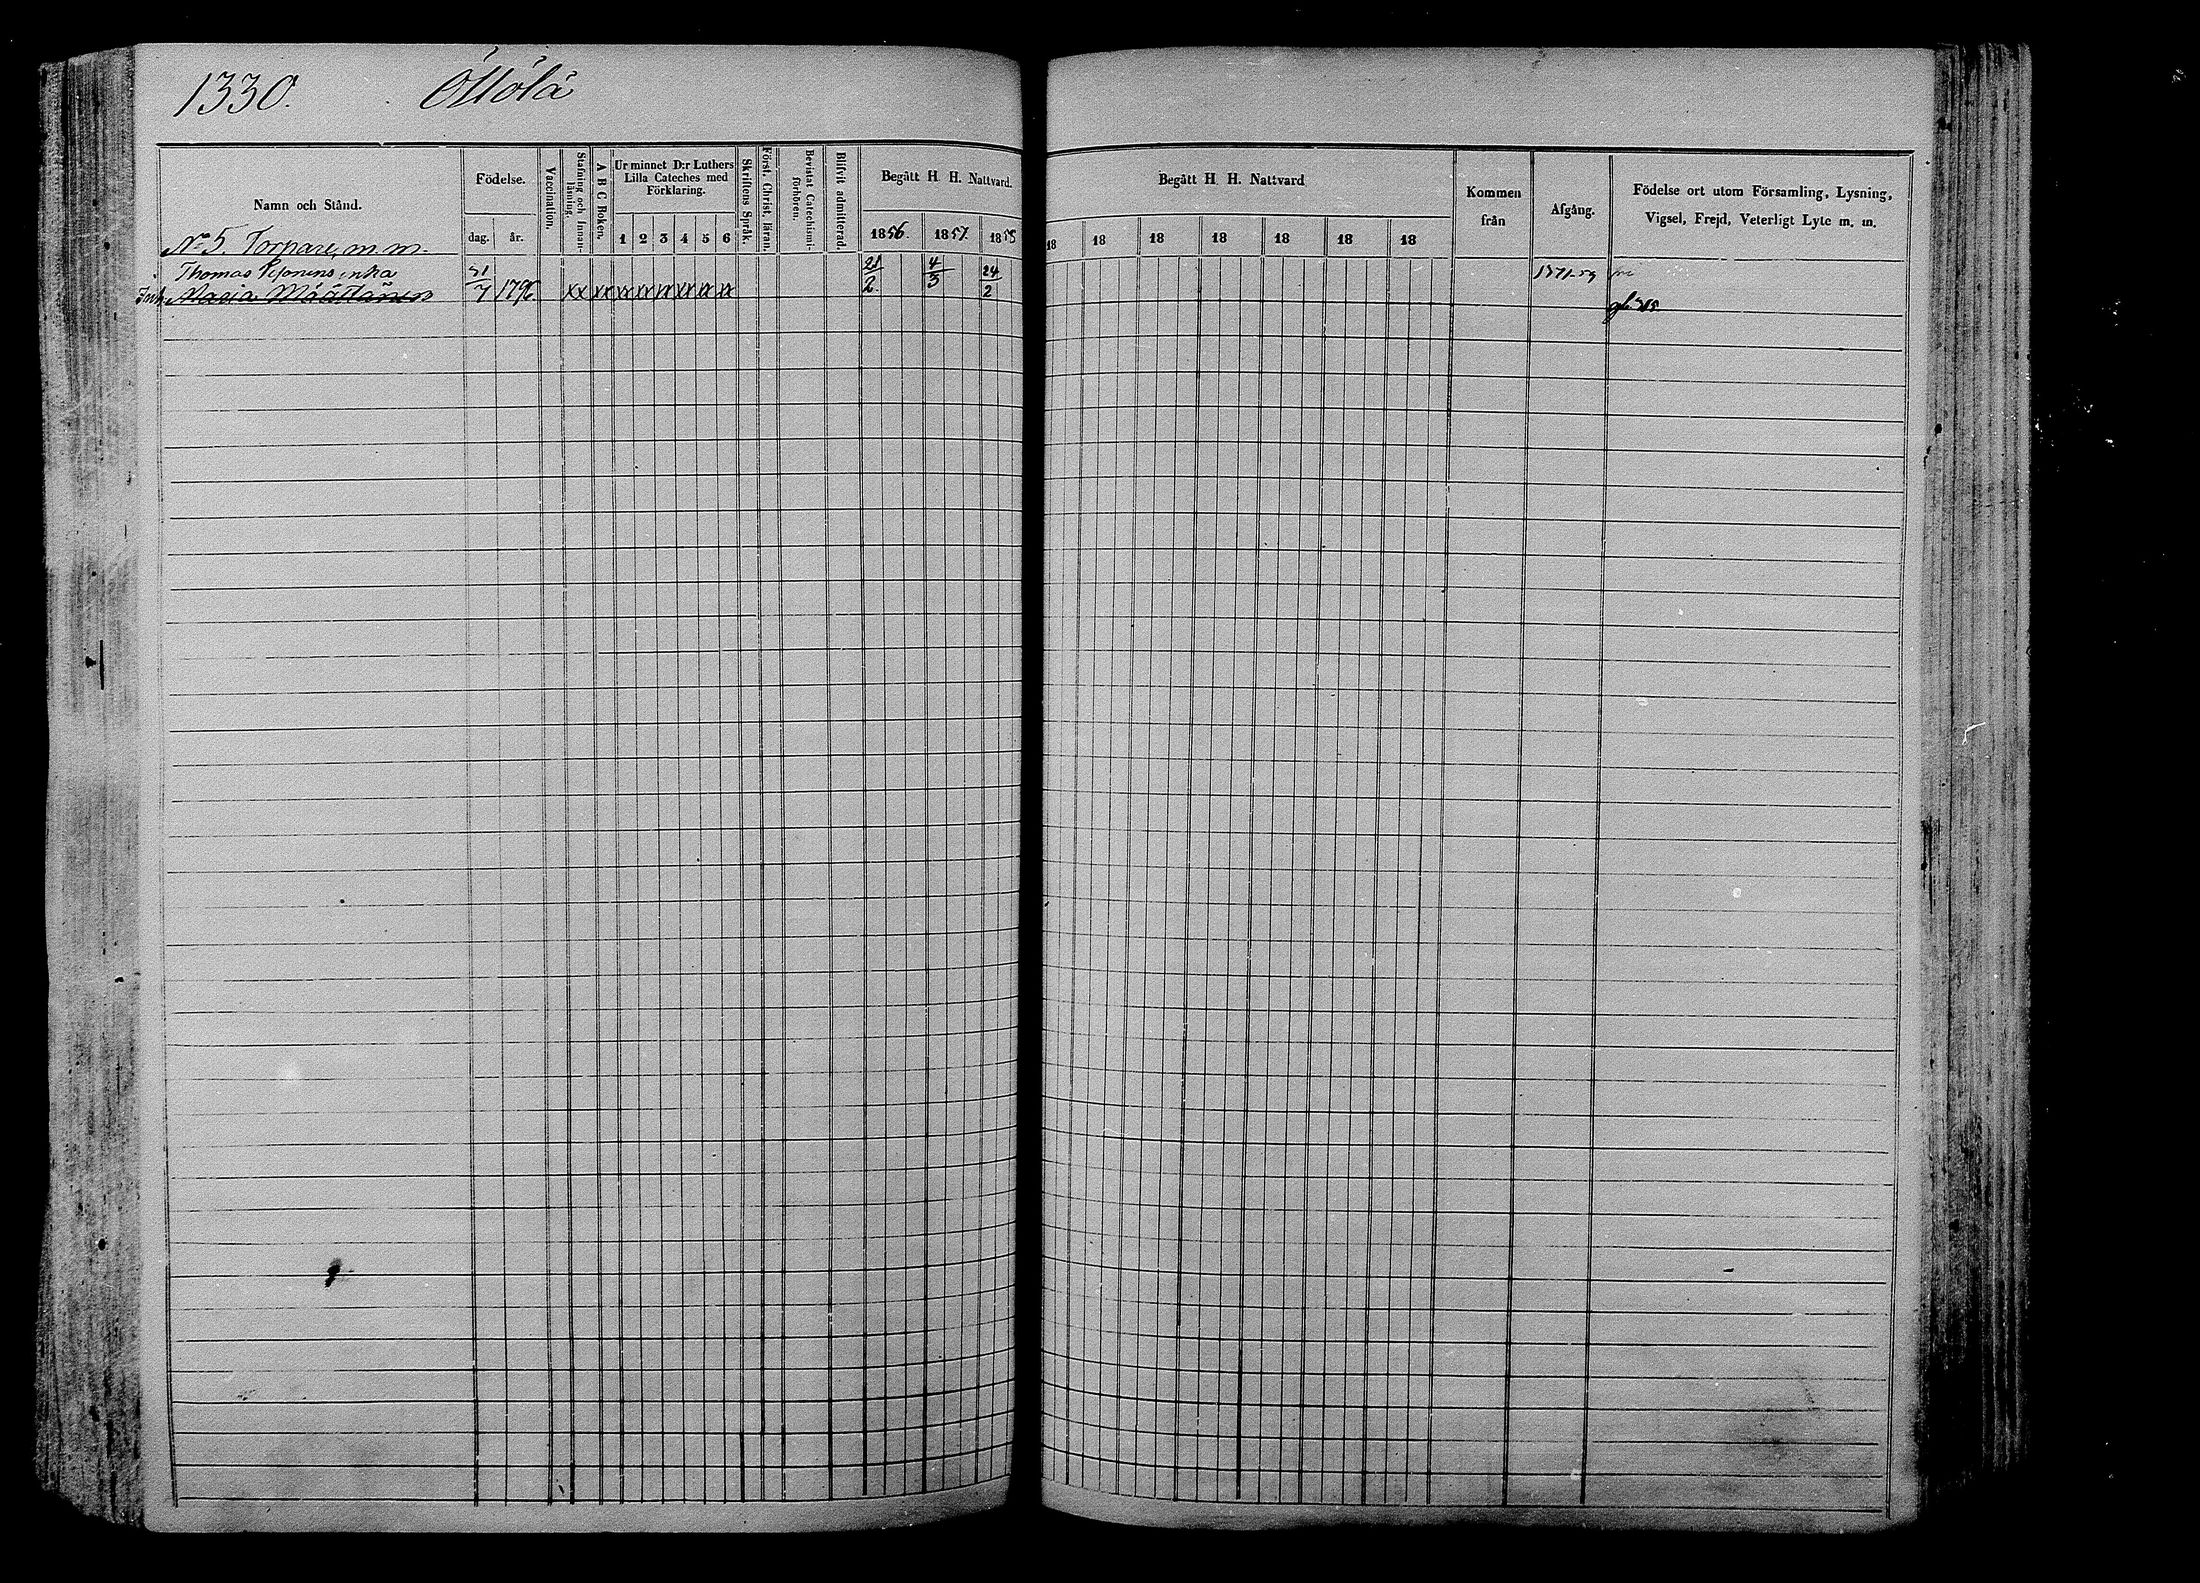 1330. Öllölä
Namn och Stånd.
Födelse.
dag. år.
Vaccination.
Stafning och Innan-läsning.
A B C Boken.
Ur minnet D:r Luthers
Lilla Cateches med
Förklaring.
1 2 3 4 5 6
Skriftens Språk.
Först. Christ. läran.
Bevistat Catechismi-förhören.
Blifvit admitterad.
Begått H. H. Nattvard.
1856. 1857. 1858
Begått H. H. Nattvard
18 18 18 18 18 18 18
Kommen
från
Afgång.
Födelse ort utom Församling, Lysning,
Vigsel, Frejd, Veterligt Lyte m. m.
No 5. Torpare, m. m.
Thomas enka 31 21 4 24
Maria Määttänen 7 1796 xx xx xx xx xx xx xx xx 2 3 2